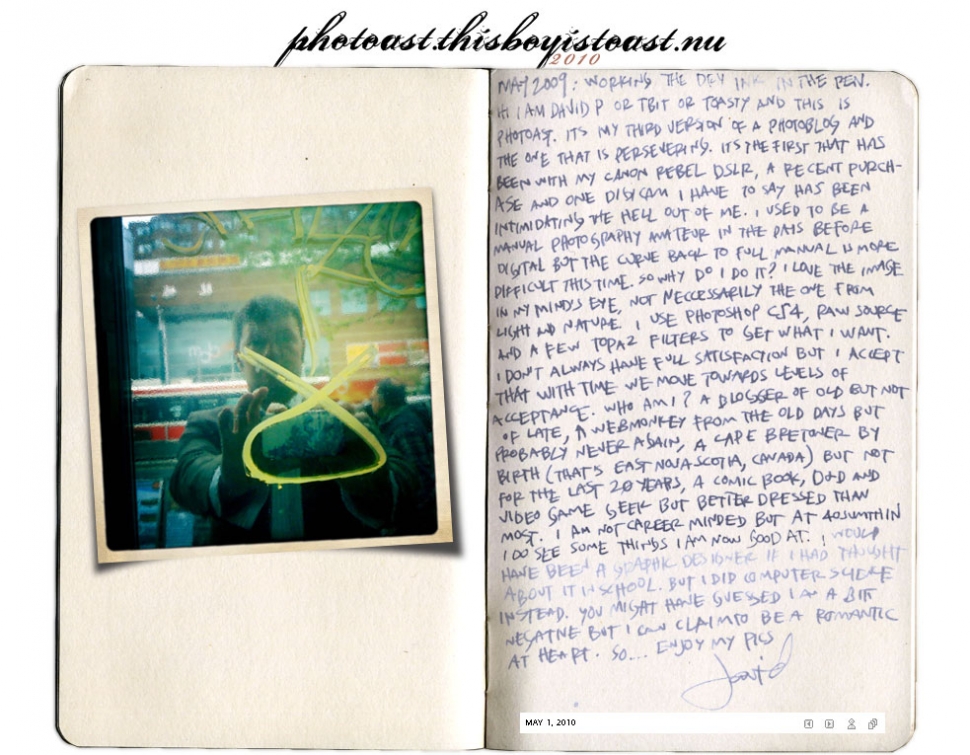 photoast.thisboyistoast.nu
2010
MAY 2009: WORKING THE DRY INK IN THE PEN.
HI I AM DAVID P OR TBIT OR TOASTY AND THIS IS
PHOTOAST. ITS MY THIRD VERSION OF A PHOTOBLOG AND
THE ONE THAT IS PERSEVERING. ITS THE FIRST THAT HAS
BEEN WITH MY CANON REBEL DSLR, A RECENT PURCH-
ASE AND ONE DIGICAM I HAVE TO SAY HAS BEEN
INTIMIDATING THE HELL OUT OF ME. I USED TO BE A
MANUAL PHOTOGRAPHY AMATEUR IN THE DAYS BEFORE
DIGITAL BUT THE CURVE BACK TO FULL MANUAL IS MORE
DIFFICULT THIS TIME. SO WHY DO I DO IT? I LOVE THE IMAGE
IN MY MINDS EYE, NOT NECCESSARILY THE ONE FROM
LIGHT AND NATURE. I USE PHOTOSHOP CS4, RAW SOURCE
AND A FEW TOPAZ FILTERS TO GET WHAT I WANT.
I DON'T ALWAYS HAVE FULL SATISFACTION BUT I ACCEPT
THAT WITH TIME WE MOVE TOWARDS LEVELS OF
ACCEPTANCE. WHO AM I? A BLOGGER OF OLD BUT NOT
OF LATE, A WEBMONKEY FROM THE OLD DAYS BUT
PROBABLY NEVER AGAIN, A CAPE BRETONER BY
BIRTH (THAT'S EAST NOVA SCOTIA, CANADA) BUT NOT
FOR THE LAST 20 YEARS, A COMIC BOOK, D&D AND
VIDEO GAME GEEK BUT BETTER DRESSED THAN
MOST. I AM NOT CAREER MINDED BUT AT 40SUMTHIN
I DO SEE SOME THINGS I AM NOW GOOD AT. I WOULD
HAVE BEEN A GRAPHIC DESIGNER IF I HAD THOUGHT
ABOUT IT IN SCHOOL. BUT I DID COMPUTER SCIENCE
INSTEAD. YOU MIGHT HAVE GUESSED I AM A BIT
NEGATIVE BUT I CAN CLAIM TO BE A ROMANTIC
AT HEART. SO... ENJOY MY PICS
David
MAY 1, 2010